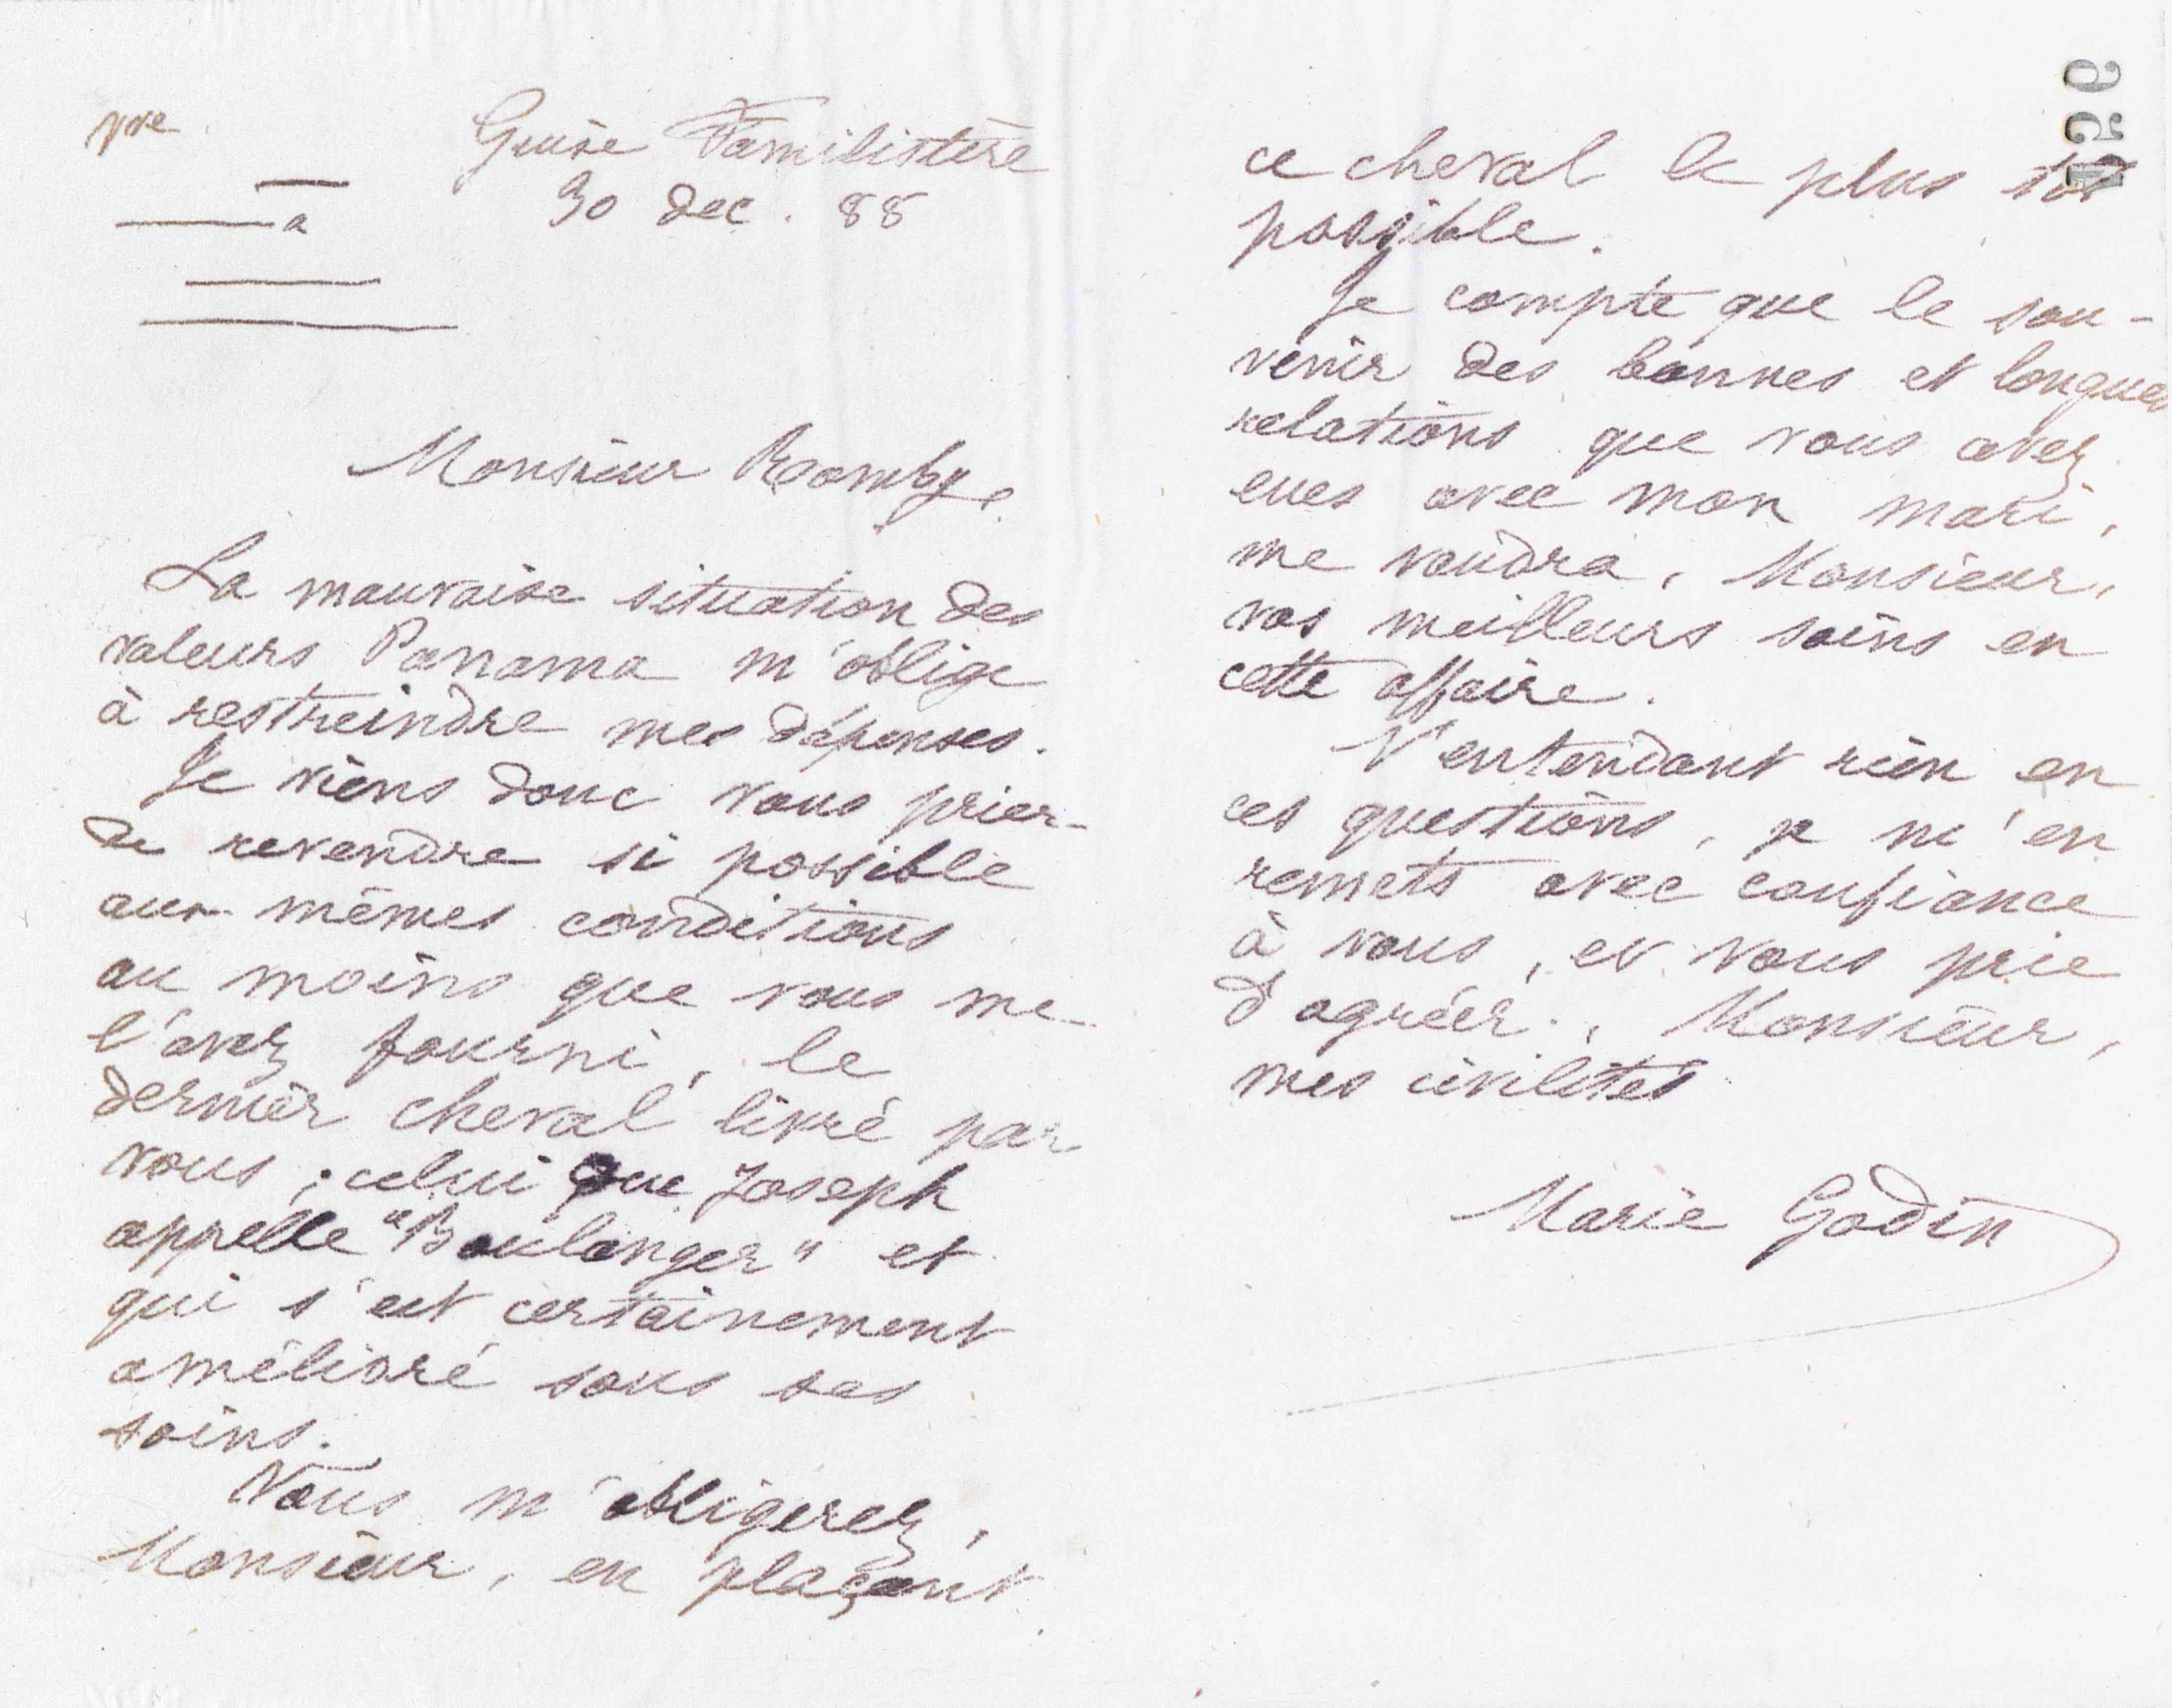 vve
Guise Familistère
a
30 dec. 88
Monsieur Romby,
La mauvaise situation des
valeurs Panama m'oblige
à restreindre mes dépenses.
Je viens donc vous prier
de revendre si possible
aux mêmes conditions
au moins que vous me
l'avez fourni, le
dernier cheval livré par
vous ; celui que Joseph
appelle "Boulanger" et
qui s'est certainement
amélioré sous ses
soins.
Vous m'obligerez,
Monsieur, en plaçant
ce cheval le plus tôt
possible.
Je compte que le sou-
venir des bonnes et longues
relations que vous avez
eues avec mon mari,
me vaudra, Monsieur,
vos meilleurs soins en
cette affaire.
N'entendant rien en
ces questions, je m'en
remets avec confiance
à vous, et vous prie
d'agréer, Monsieur,
mes civilités
Marie Godin